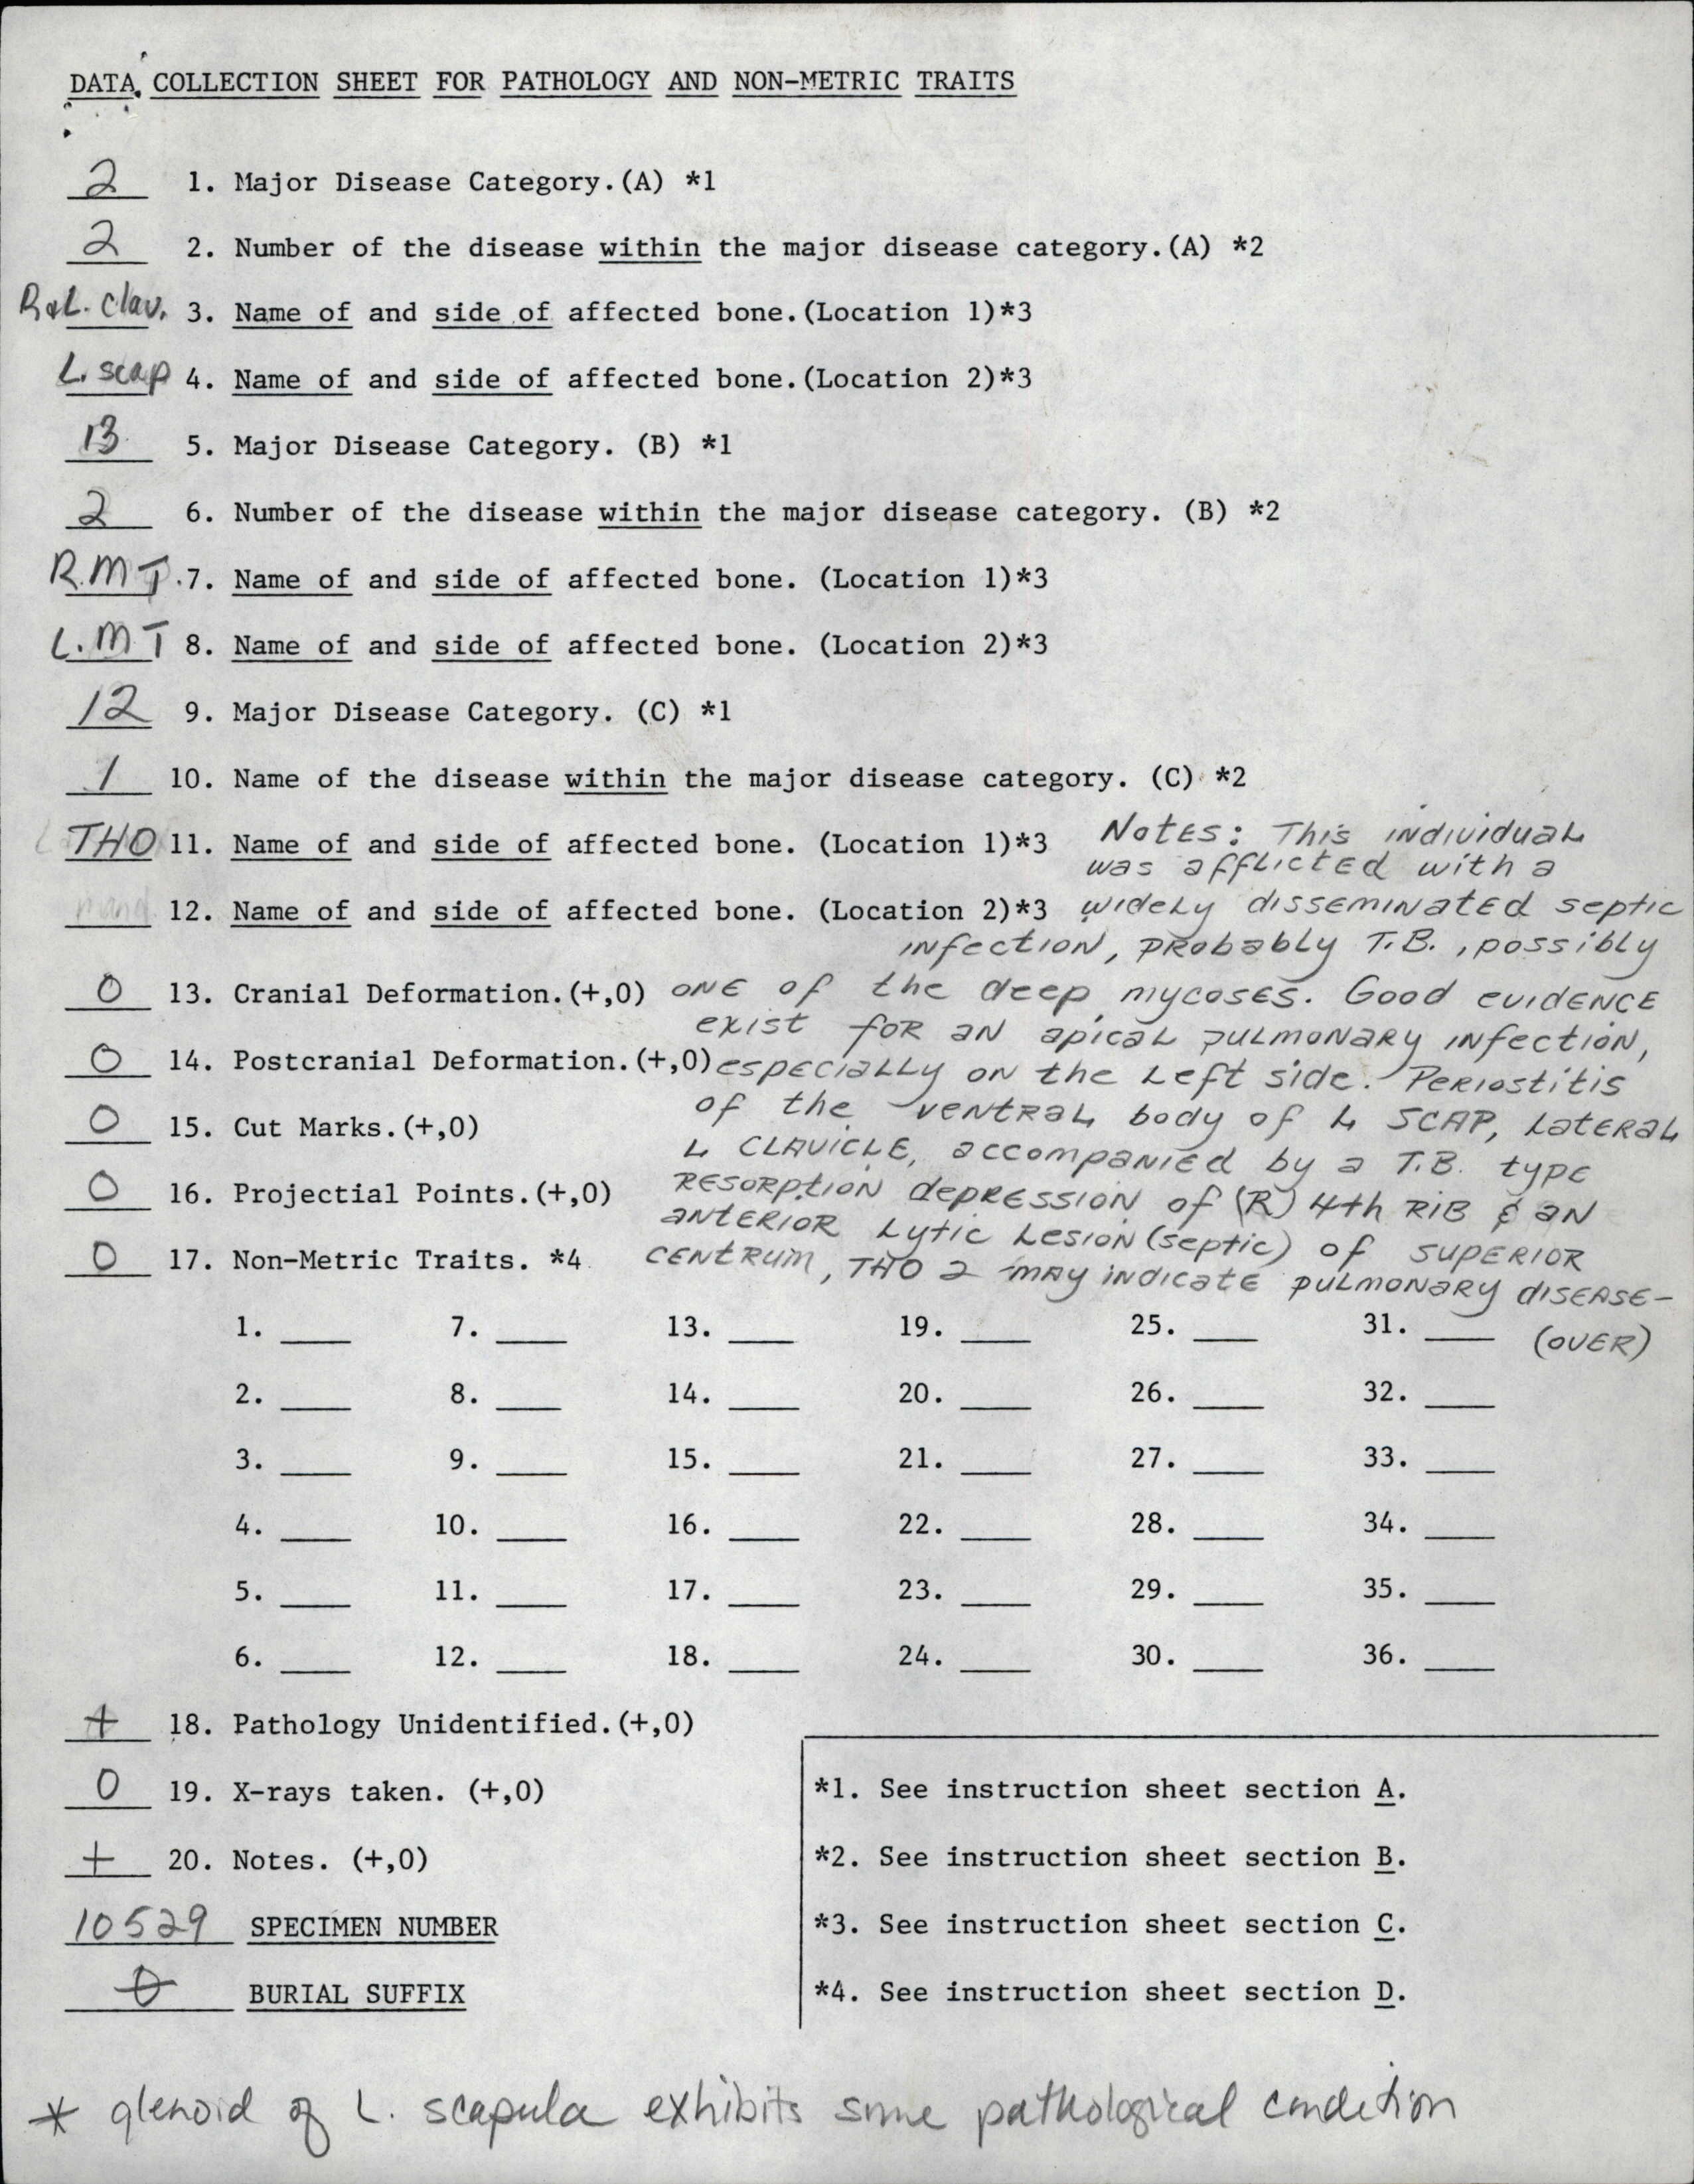 DATA COLLECTION SHEET FOR PATHOLOGY AND NON-METRIC TRAITS
2 1. Major Disease Category.(A) *1
2 2. Number of the disease within the major disease category.(A) *2
R&L. clav. 3. Name of and side of affected bone.(Location 1)*3
L. scap 4. Name of and side of affected bone.(Location 2)*3
13 5. Major Disease Category. (B) *1
2 6. Number of the disease within the major disease category. (B) *2
R.MT. 7. Name of and side of affected bone. (Location 1)*3
L.MT 8. Name of and side of affected bone. (Location 2)*3
12 9. Major Disease Category. (C) *1
1 10. Name of the disease within the major disease category. (C) *2
THO 11. Name of and side of affected bone. (Location 1)*3
mand. 12. Name of and side of affected bone. (Location 2)*3
Notes: This individual
was afflicted with a
widely disseminated septic
infection, probably T.B., possibly
one of the deep mycoses. Good evidence
exist for an apical pulmonary infection,
especially on the left side. Periostitis
of the ventral body of L SCAP, lateral
L CLAVICLE, accompanied by a T.B. type
resorption depression of (R) 4th rib & an
anterior lytic lesion (septic) of superior
centrum, THO 2 may indicate pulmonary disease-
(OVER)
0 13. Cranial Deformation.(+,0)
0 14. Postcranial Deformation.(+,0)
0 15. Cut Marks.(+,0)
0 16. Projectial Points.(+,0)
0 17. Non-Metric Traits. *4
1. ____ 7. ____ 13. ____ 19. ____ 25. ____ 31. ____
2. ____ 8. ____ 14. ____ 20. ____ 26. ____ 32. ____
3. ____ 9. ____ 15. ____ 21. ____ 27. ____ 33. ____
4. ____ 10. ____ 16. ____ 22. ____ 28. ____ 34. ____
5. ____ 11. ____ 17. ____ 23. ____ 29. ____ 35. ____
6. ____ 12. ____ 18. ____ 24. ____ 30. ____ 36. ____
+ 18. Pathology Unidentified.(+,0)
0 19. X-rays taken. (+,0)
+ 20. Notes. (+,0)
10529 SPECIMEN NUMBER
0 BURIAL SUFFIX
*1. See instruction sheet section A.
*2. See instruction sheet section B.
*3. See instruction sheet section C.
*4. See instruction sheet section D.
* glenoid of L. scapula exhibits some pathological condition